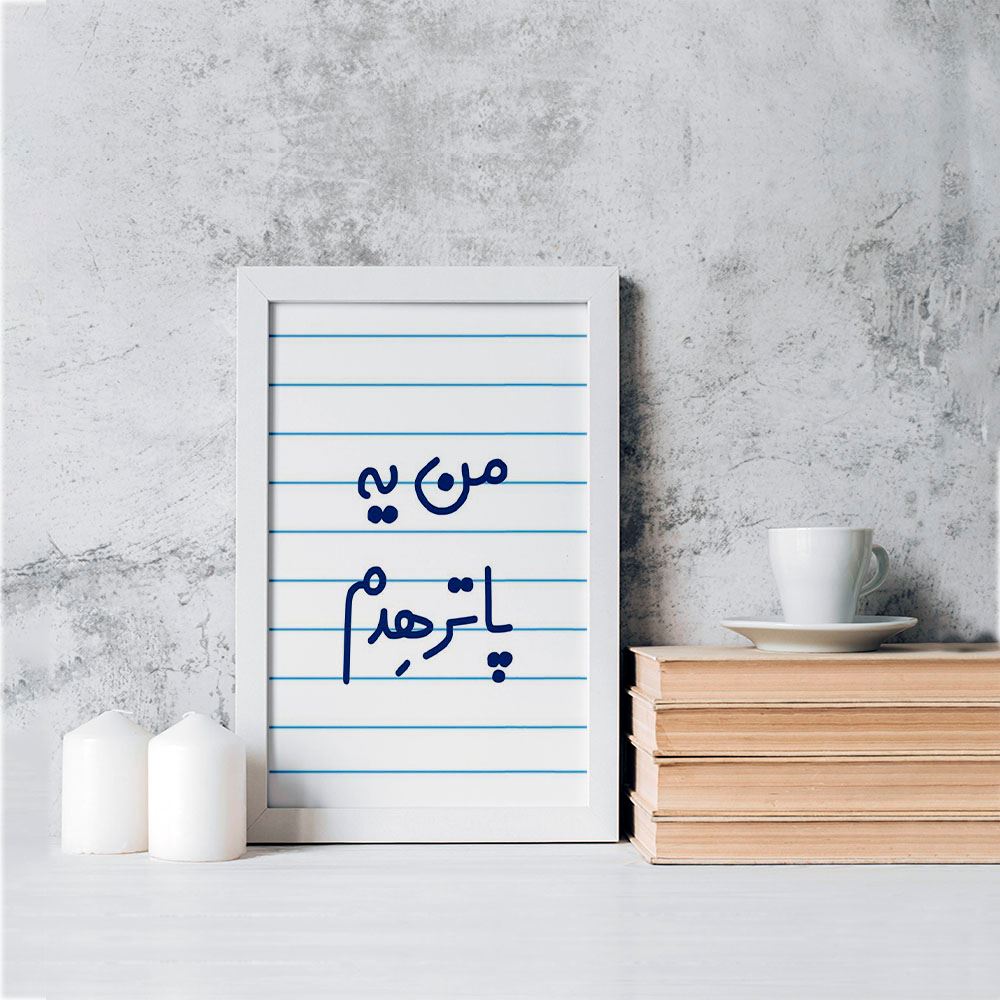 من یه
پاترهِدم